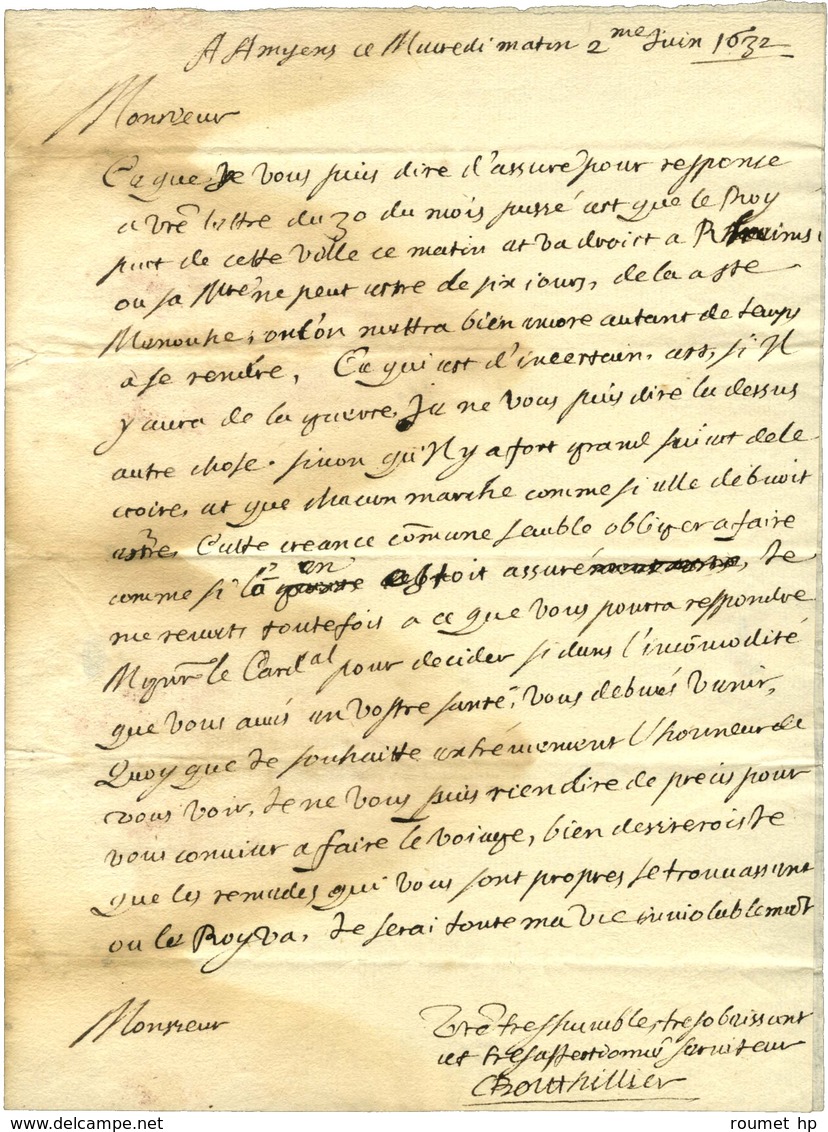 A Amyens ce Mercredi matin 2me Juin 1632
Monsieur
Ce que Je vous puis dire d'assuré pour response
a vre lettre du 30 du mois passé est que le Roy
part de cette ville ce matin et va droict a Rheims
ou sa Mté ne peut estre de six jours, de la a Ste
Menouhe, ou l'on mettra bien encore autant de temps
a se rendre, Ce qui est d'incertain, est, si Il
y aura de la guerre, Je ne vous puis dire la dessus
autre chose, sinon qu'Il y a fort grand suiect de le
croire, et que chacun marche comme si elle debvoit
estre, Cette creance cõmune semble obliger a faire
comme si l'on en estoit assuré, Je
me remets toutefois a ce que vous pourra respondre
Mgnr le Cardal pour decider si dans l'incõmodité
que vous avés en vostre santé, vous debvés venir,
Quoy que Je souhaitte extrémement l'honneur de
vous voir, Je ne vous puis rien dire de precis pour
vous convier a faire le voiage, bien desirerois Je
que les remedes qui vous sont propres se trouvassent
ou le Roy va, Je serai toute ma vie inviolablemẽt
Monsieur
Vre tres humble, tres obeissant
et tres affectionné serviteur
Bouthillier
roumet hp